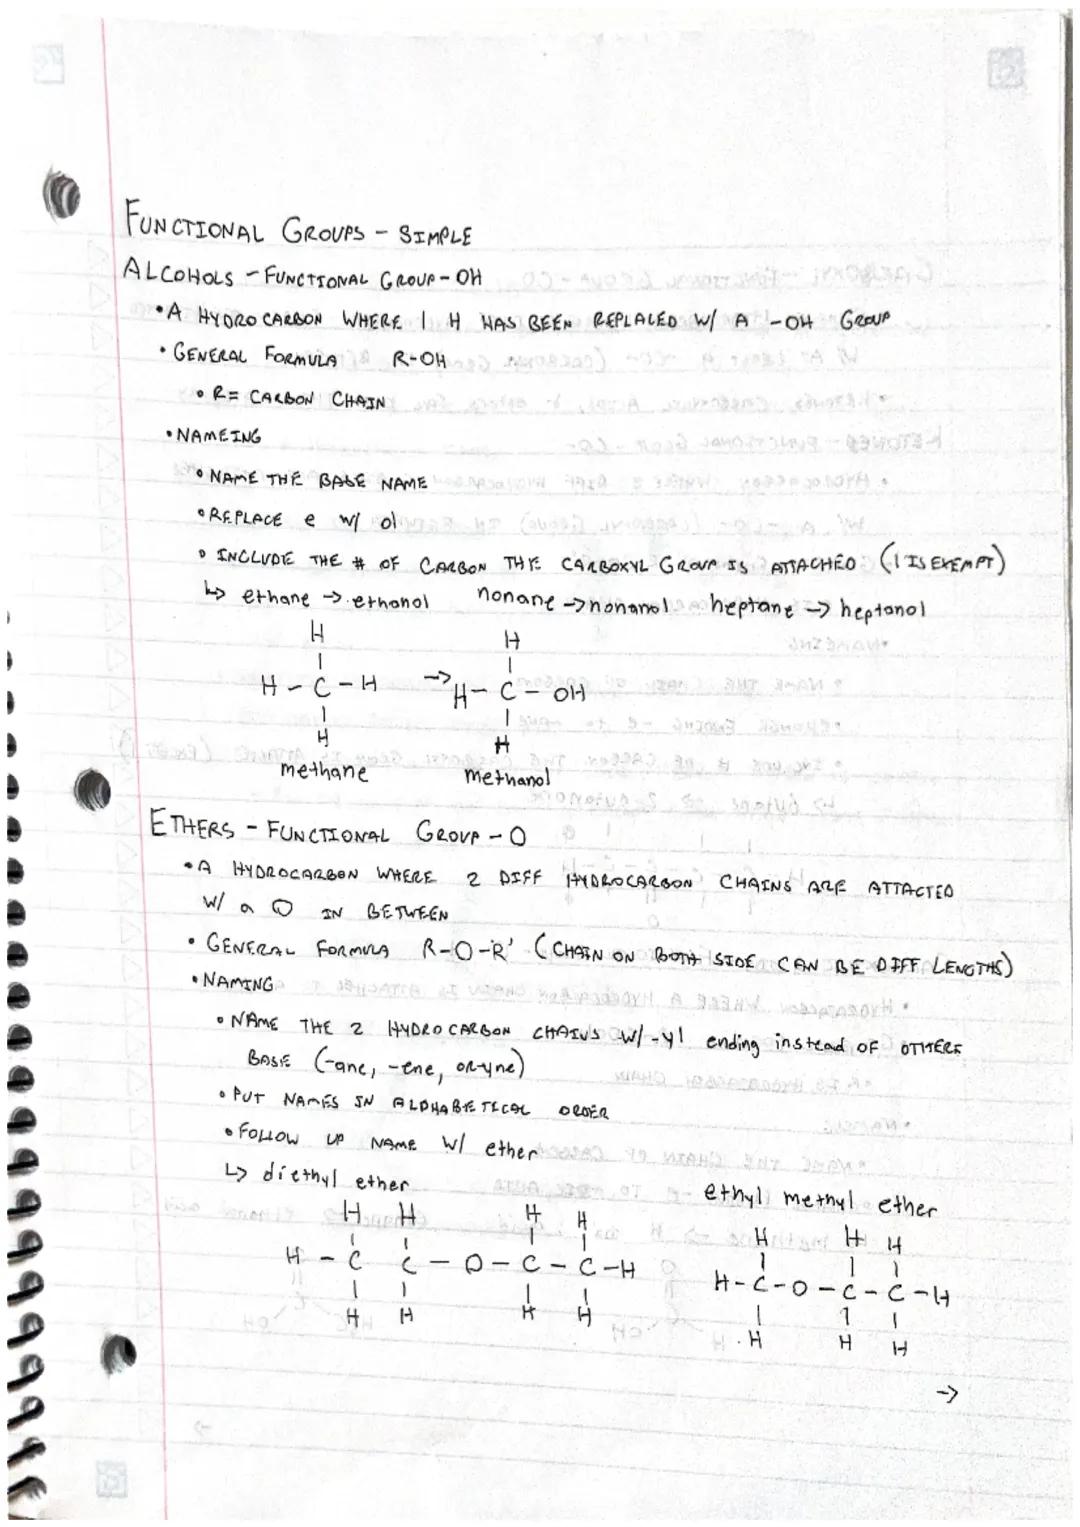 FUNCTIONAL GROUPS - SIMPLE
ALCOHOLS - FUNCTIONAL GROUP - OH
• A HYDROCARBON WHERE 1 H HAS BEEN REPLACED W/ A -OH GROUP
• GENERAL FORMULA R-OH
• R= CARBON CHAIN
• NAMEING
• NAME THE BASE NAME
• REPLACE e w/ ol
• INCLUDE THE # OF CARBON THE CARBOXYL GROUP IS ATTACHED (1 IS EXEMPT)
↳ ethane → ethanol nonane → nonanol heptane → heptanol
H H
H - C - H → H - C - OH
H H
methane methanol
ETHERS - FUNCTIONAL GROUP - O
• A HYDROCARBON WHERE 2 DIFF HYDROCARBON CHAINS ARE ATTACTED
W/ a O IN BETWEEN
• GENERAL FORMULA R-O-R' (CHAIN ON BOTH SIDE CAN BE DIFF LENGTHS)
• NAMING
• NAME THE 2 HYDROCARBON CHAINS W/ -yl ending instead OF OTHERE
BASE (-ane, -ene, or -yne)
• PUT NAMES IN ALPHABETICAL ORDER
• FOLLOW UP NAME W/ ether
↳ diethyl ether ethyl methyl ether
H H H H H H H
H - C C - O - C - C - H H - C - O - C - C - H
H H H H H H H
→